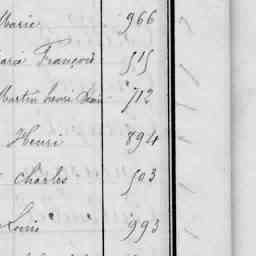 Marie 966
Marie François 515
Martin 712
Henri 894
Charles 503
Louis " " 993